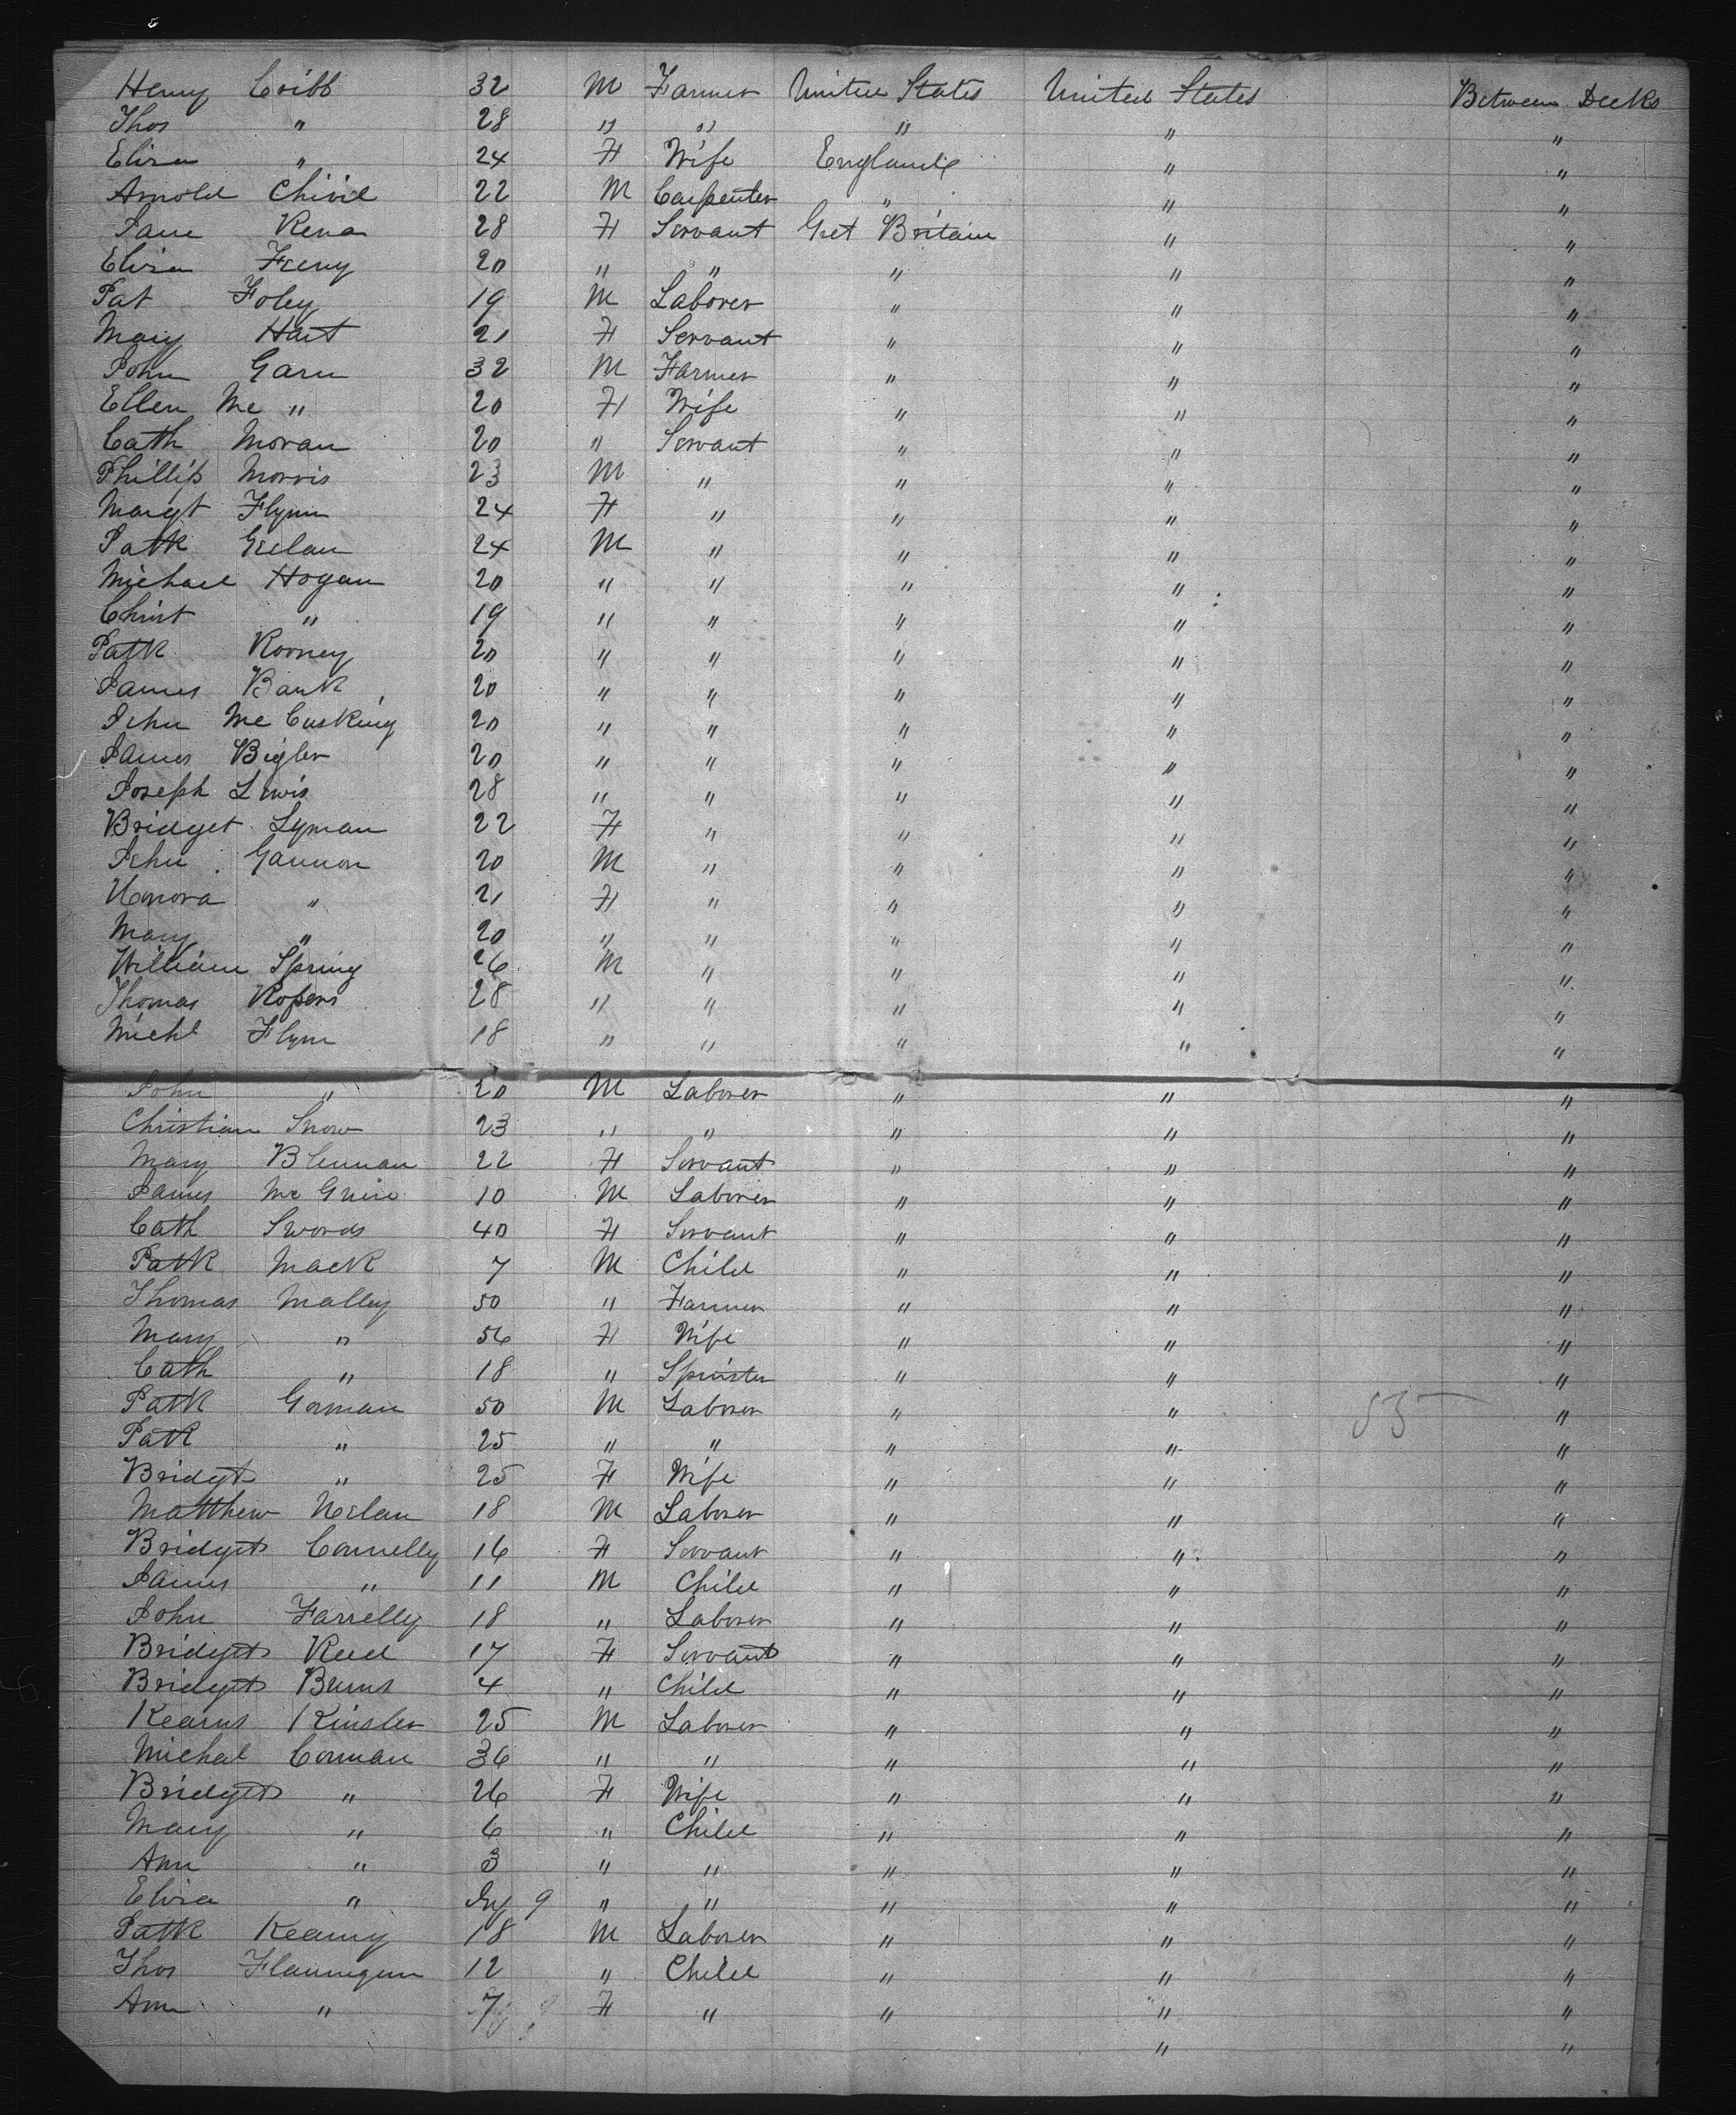 Henry Cribb 32 M Farmer United States United States Between Decks
Thos " 28 " " " " "
Eliza " 24 F Wife England " "
Arnold Chivil 22 M Carpenter " " "
Jane Rena 28 F Servant Gret Britain " "
Eliza Feeny 20 " " " " "
Pat Foley 19 M Laborer " " "
Mary Hart 21 F Servant " " "
John Garu 32 M Farmer " " "
Ellen Mc " 20 F Wife " " "
Cath Moran 20 " Servant " " "
Phillip Morris 23 M " " " "
Margt Flynn 24 F " " " "
Patk Geelan 24 M " " " "
Michael Hogan 20 " " " " "
Christ " 19 " " " " "
Patk Rooney 20 " " " " "
James Bank 20 " " " " "
John Mc Cusking 20 " " " " "
James Bigler 20 " " " " "
Joseph Lewis 28 " " " " "
Bridget Lyman 22 F " " " "
John Gannon 20 M " " " "
Honora " 21 F " " " "
Mary " 20 " " " " "
William Spring 26 M " " " "
Thomas Ropers 28 " " " " "
Michl Flynn 18 " " " " "
John " 20 M Laborer " " "
Christian Snow 23 " " " " "
Mary Blennan 22 F Servant " " "
James Mc Guire 10 M Laborer " " "
Cath Swords 40 F Servant " " "
Patk Mack 7 M Child " " "
Thomas Malley 50 " Farmer " " "
Mary " 56 F Wife " " "
Cath " 18 " Spinster " " "
Patk Gorman 50 M Laborer " " 53 "
Patk " 25 " " " " "
Bridgt " 25 F Wife " " "
Matthew Nelan 18 M Laborer " " "
Bridget Connelly 16 F Servant " " "
James " 11 M Child " " "
John Farrelly 18 " Laborer " " "
Bridget Reed 17 F Servant " " "
Bridget Burns 4 " Child " " "
Kearns Kinsler 25 M Laborer " " "
Michal Corman 36 " " " " "
Bridget " 26 F Wife " " "
Mary " 6 " Child " " "
Ann " 3 " " " " "
Eliza " Inf 9 " " " " "
Patk Kearny 18 M Laborer " " "
Thos Flannegan 12 " Child " " "
Ann " 7 F " " " "
" "